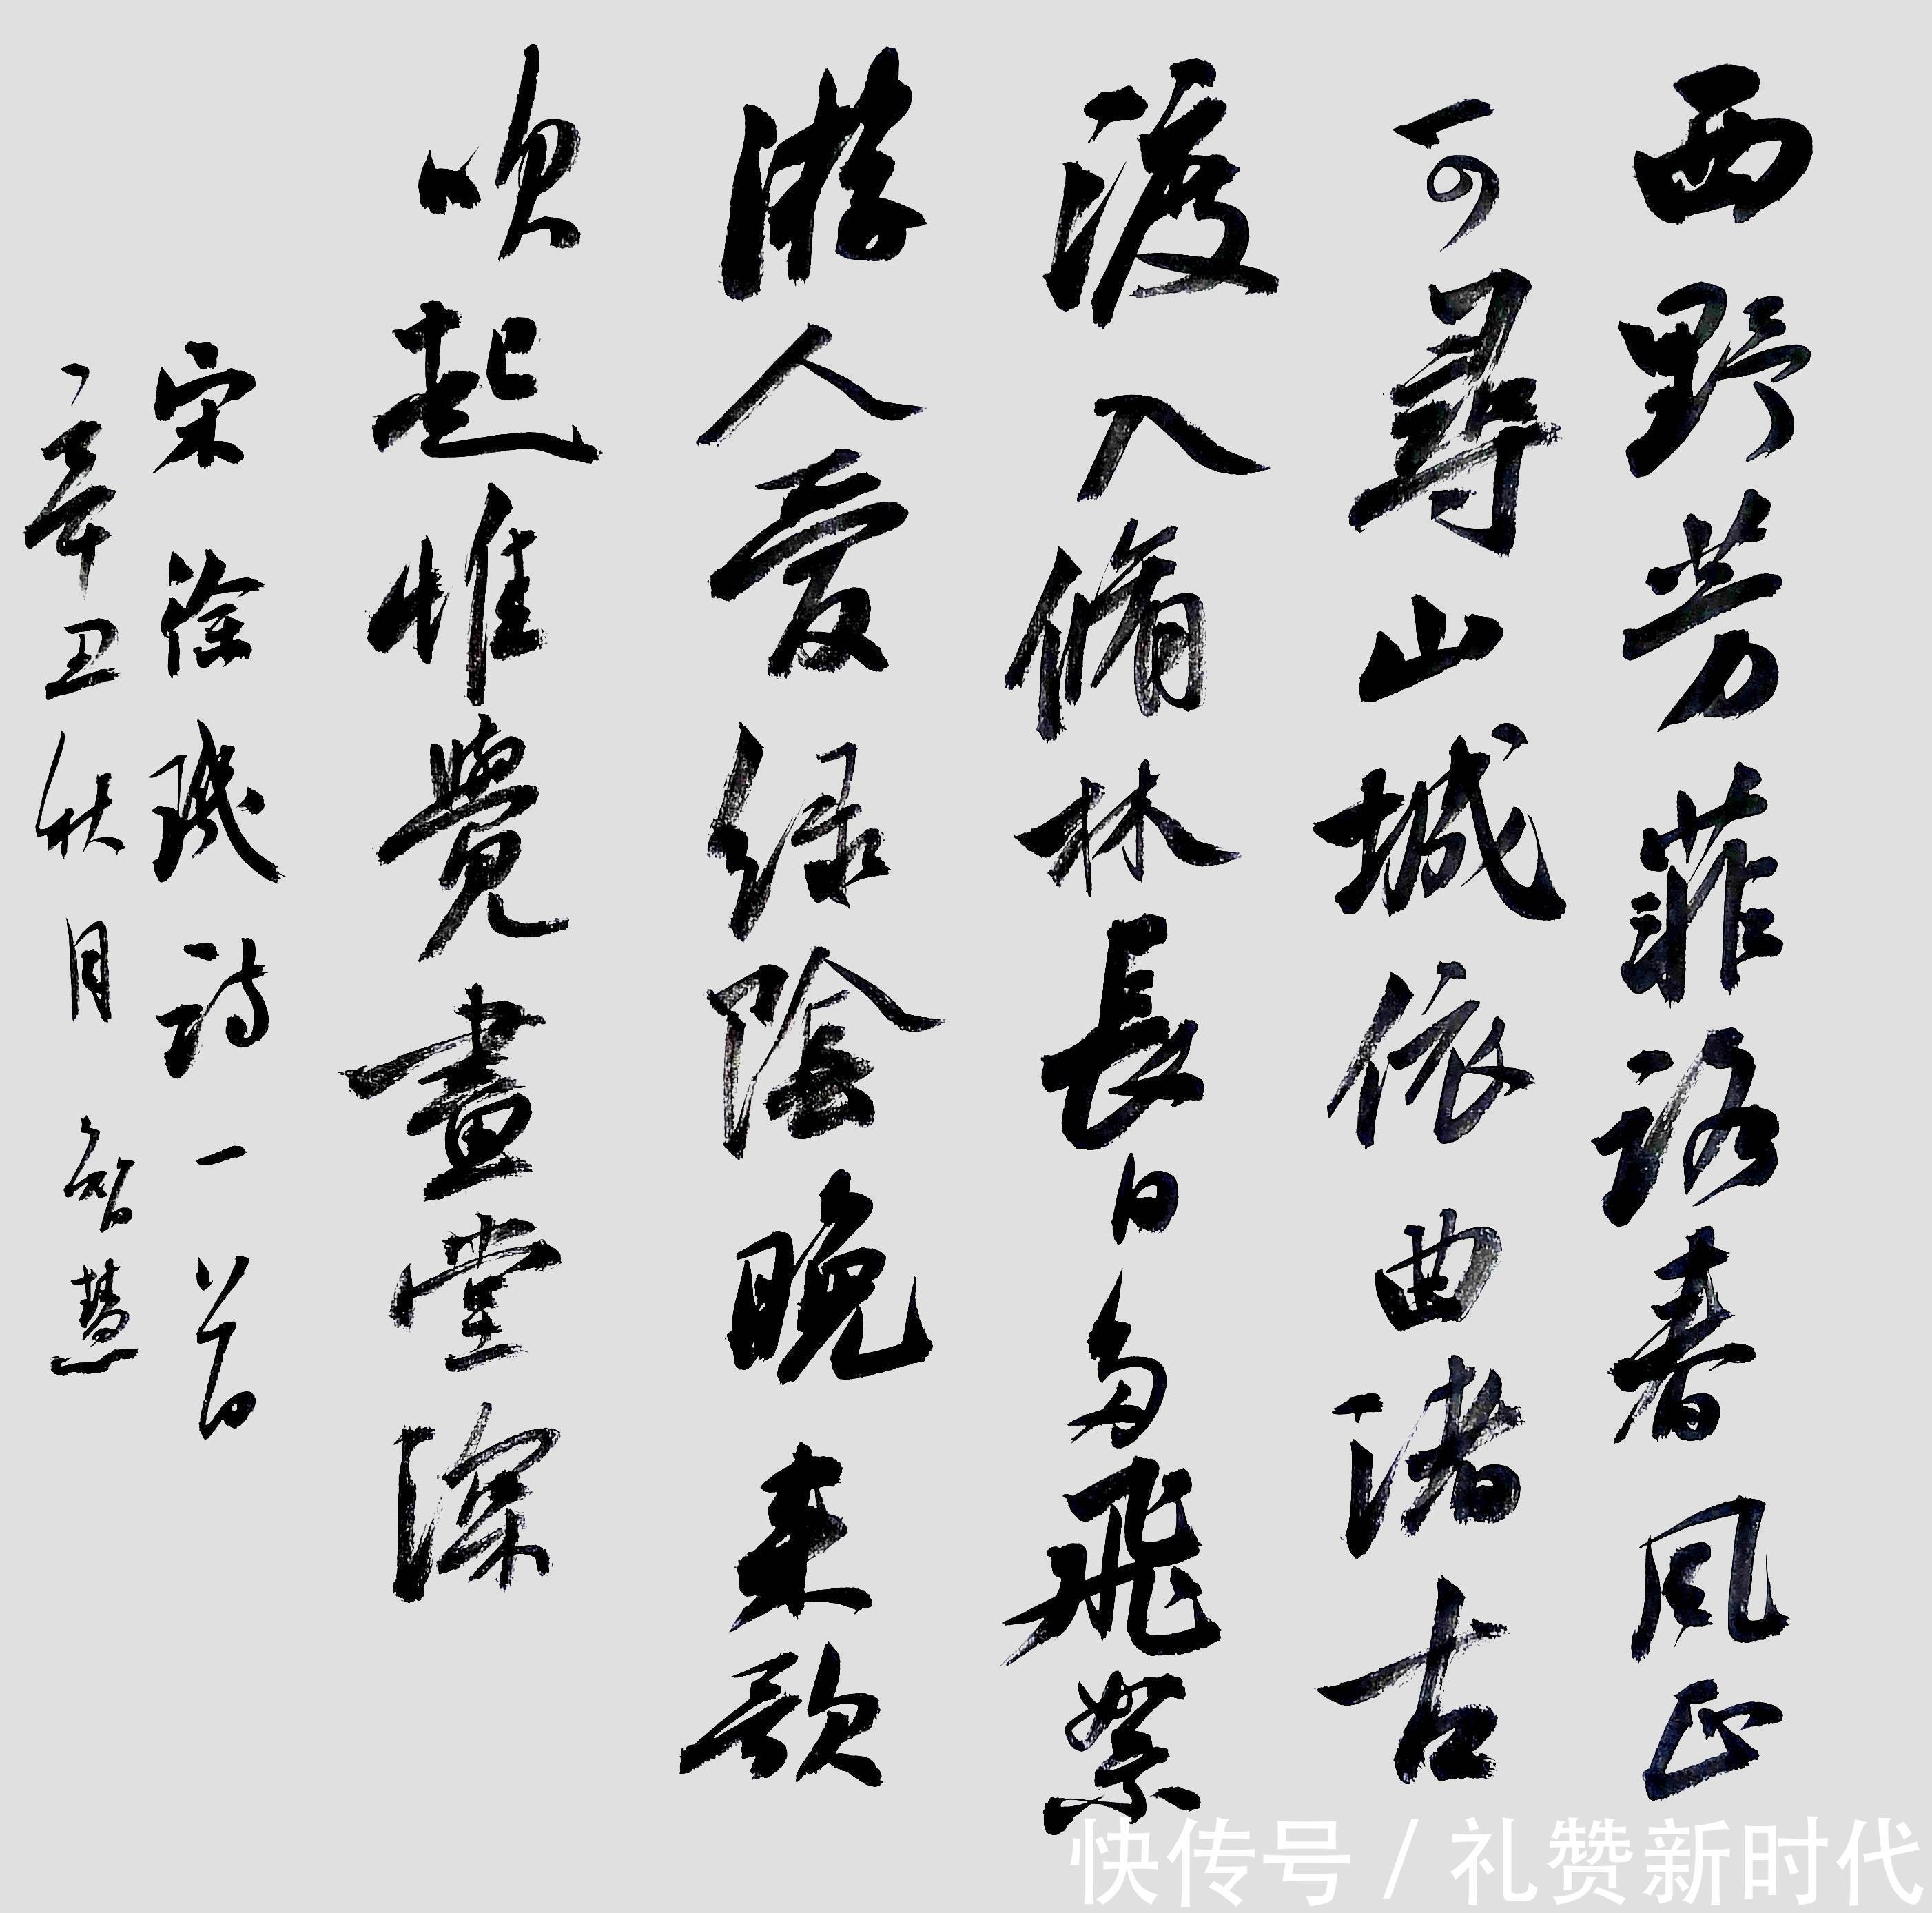 西野芳菲路春風正
可尋山城依曲渚古
渡入脩林長日多飛絮
游人爱绿陰晚来歌
吹起惟覺畫堂深
宋徐璣诗一首
辛丑秋月智慧
快传号/礼赞新时代